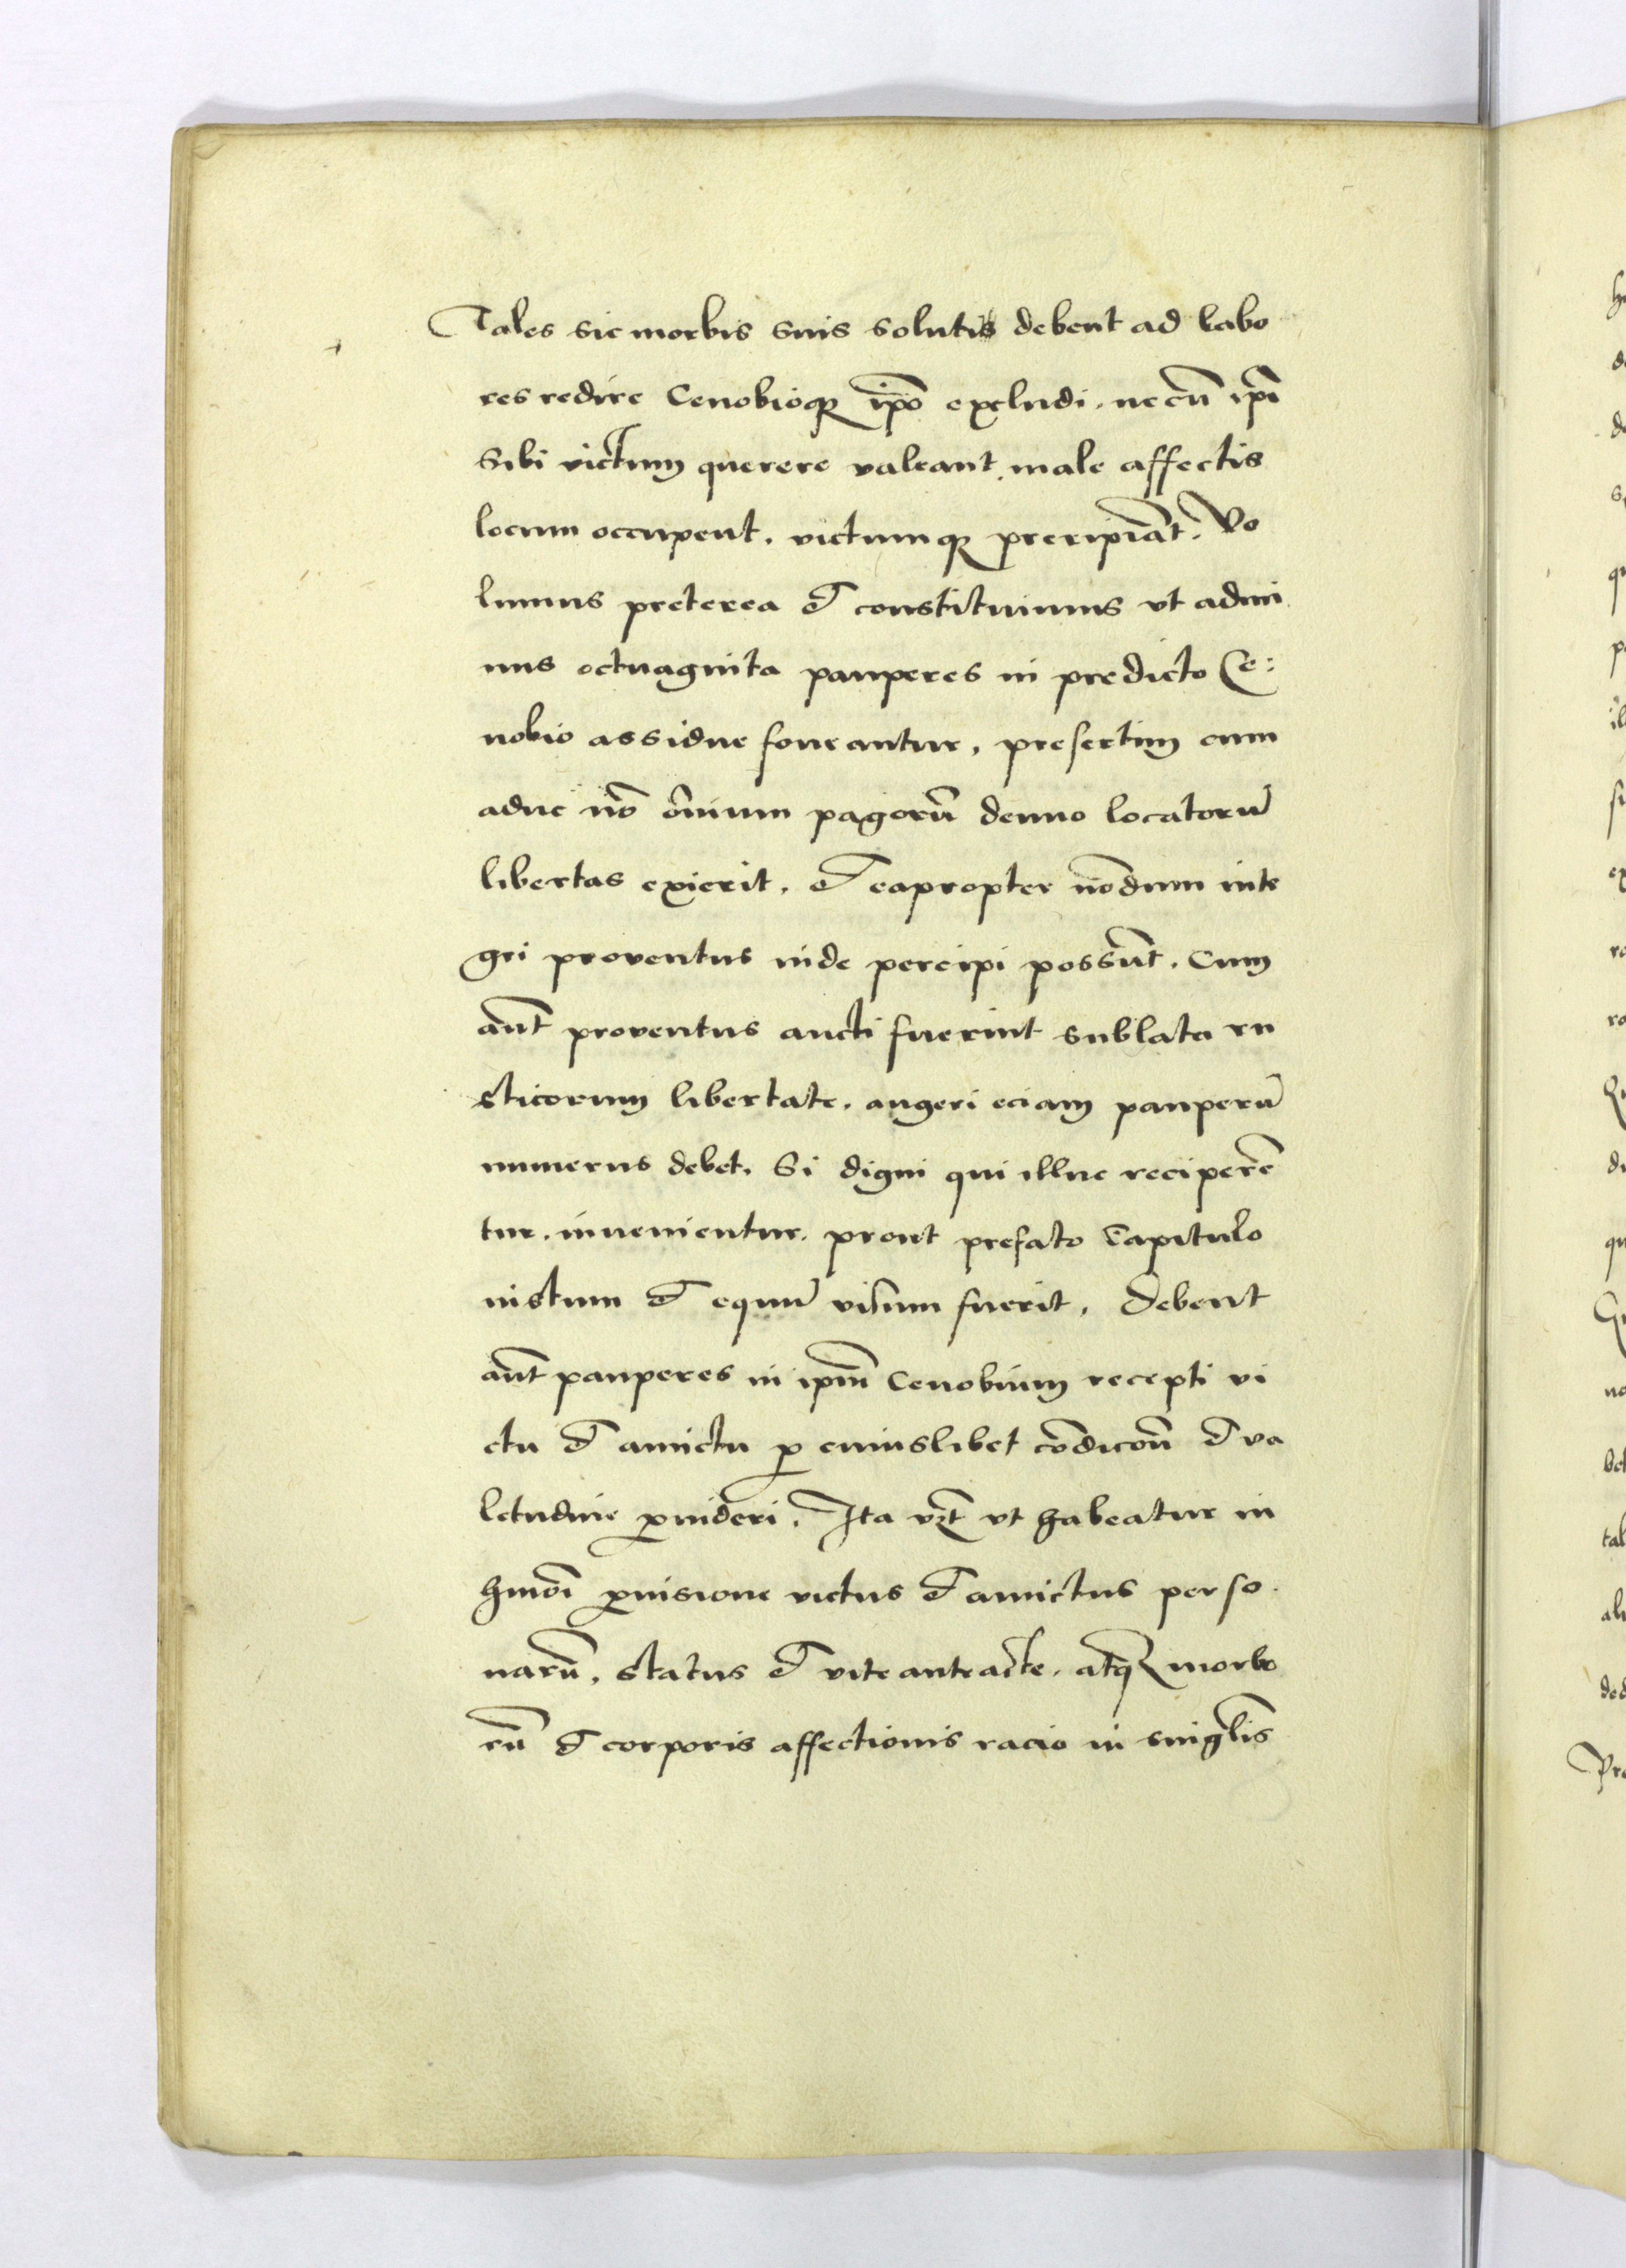 Tales sic morbis suis solutis debent ad labo
res redire Cenobioq̃ ip̄o excludi. ne cū ip̄i
sibi victum querere valeant. male affectis
locum occupent. victumq̃ preripiāt. Vo
lumus preterea et constituimus vt admi
nus octuaginta pauperes in predicto Ce:
nobio assidue foueantur, presertim cum
aduc nō om̄ium pagorū denuo locatorū
libertas exierit. et eapropter nōdum inte
gri proventus inde percipi possūt. Cum
aūt proventus aucti fuerint sublata ru
sticorum libertate. augeri eciam pauperū
numerus debet. Si digni qui illuc reciperē
tur. invenientur. prout prefato Capitulo
iustum et equū visum fuerit. Debent
aūt pauperes in ip̄m Cenobium recepti vi
ctu et amictu ꝑ cuiuslibet cōdicōn̄ et va
letudine ꝓuideri. Ita vz̄t vt habeatur in
hmōi ꝓuisione victus et amictus perso
narū. status et vite anteacte. atq̃ morbo
rū et corporis affectionis racio in singl̄is